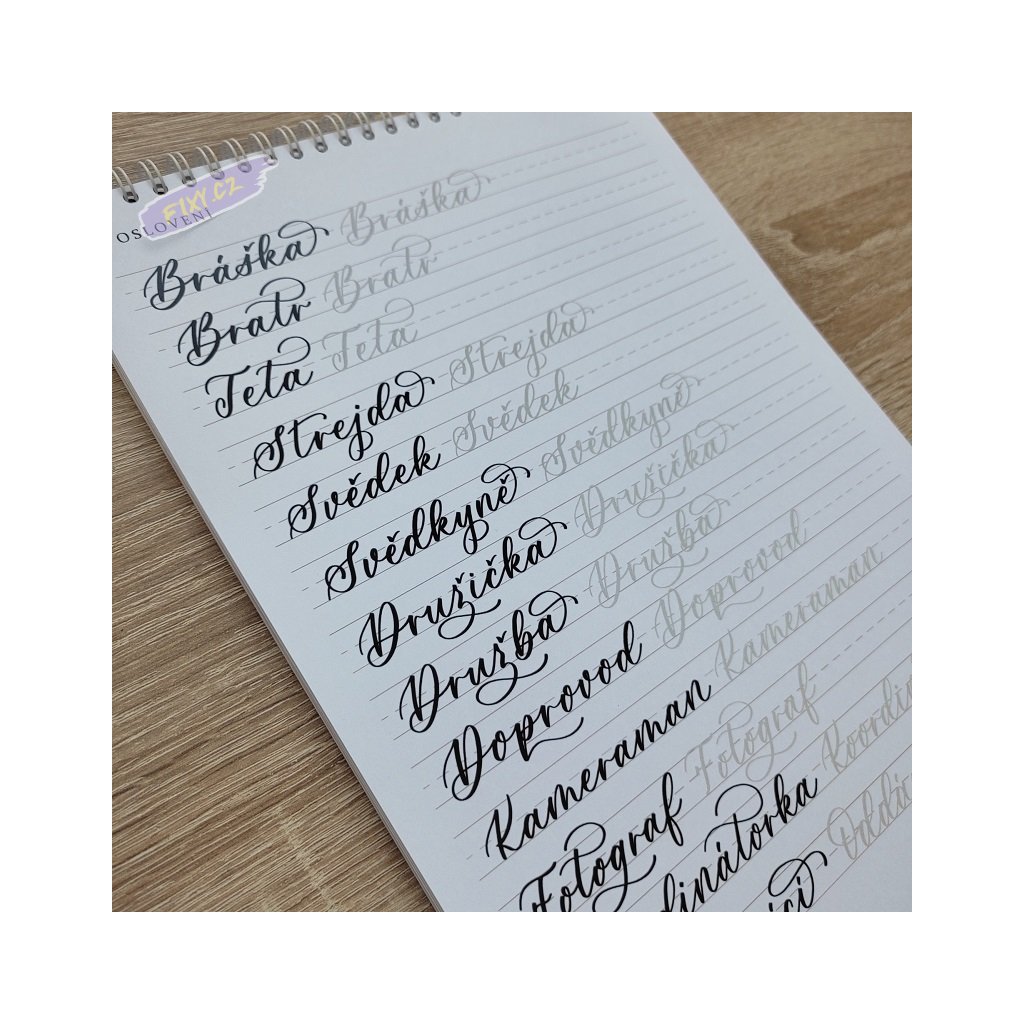 FIXY.CZ
OSLOVENÍ
Bráška Bráška
Bratr Bratr
Teta Teta
Strejda Strejda
Svědek Svědek
Svědkyně Svědkyně
Družička Družička
Družba Družba
Doprovod Doprovod
Kameraman Kameraman
Fotograf Fotograf
dinátorka Koordi
ící Oddá